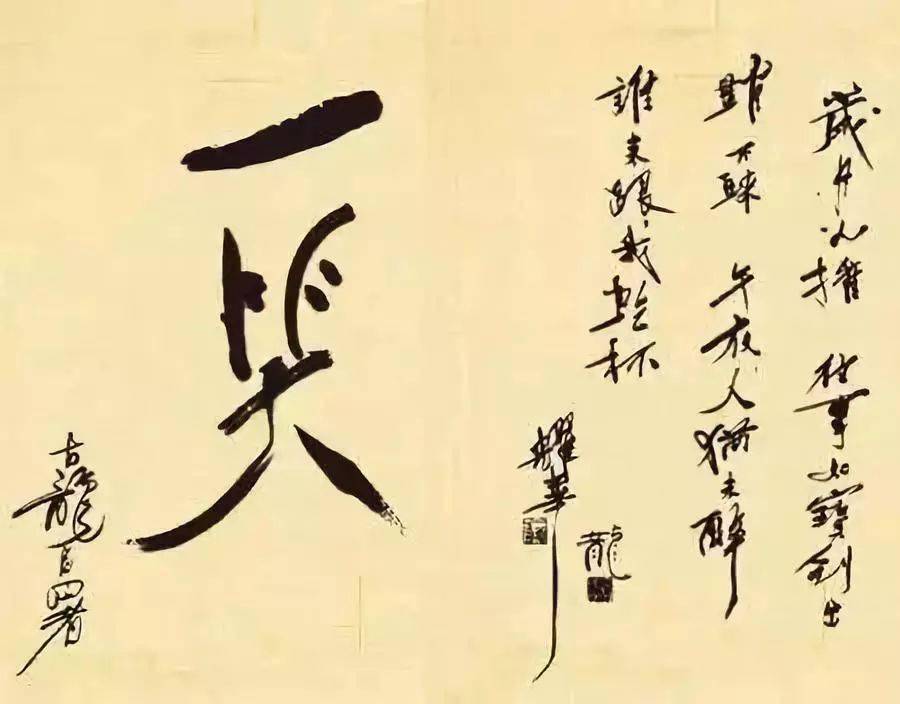 歲月 往事如寶劍出
不 午夜人猶未醉
誰來跟我乾杯
耀華
龍
一笑
古龍自署